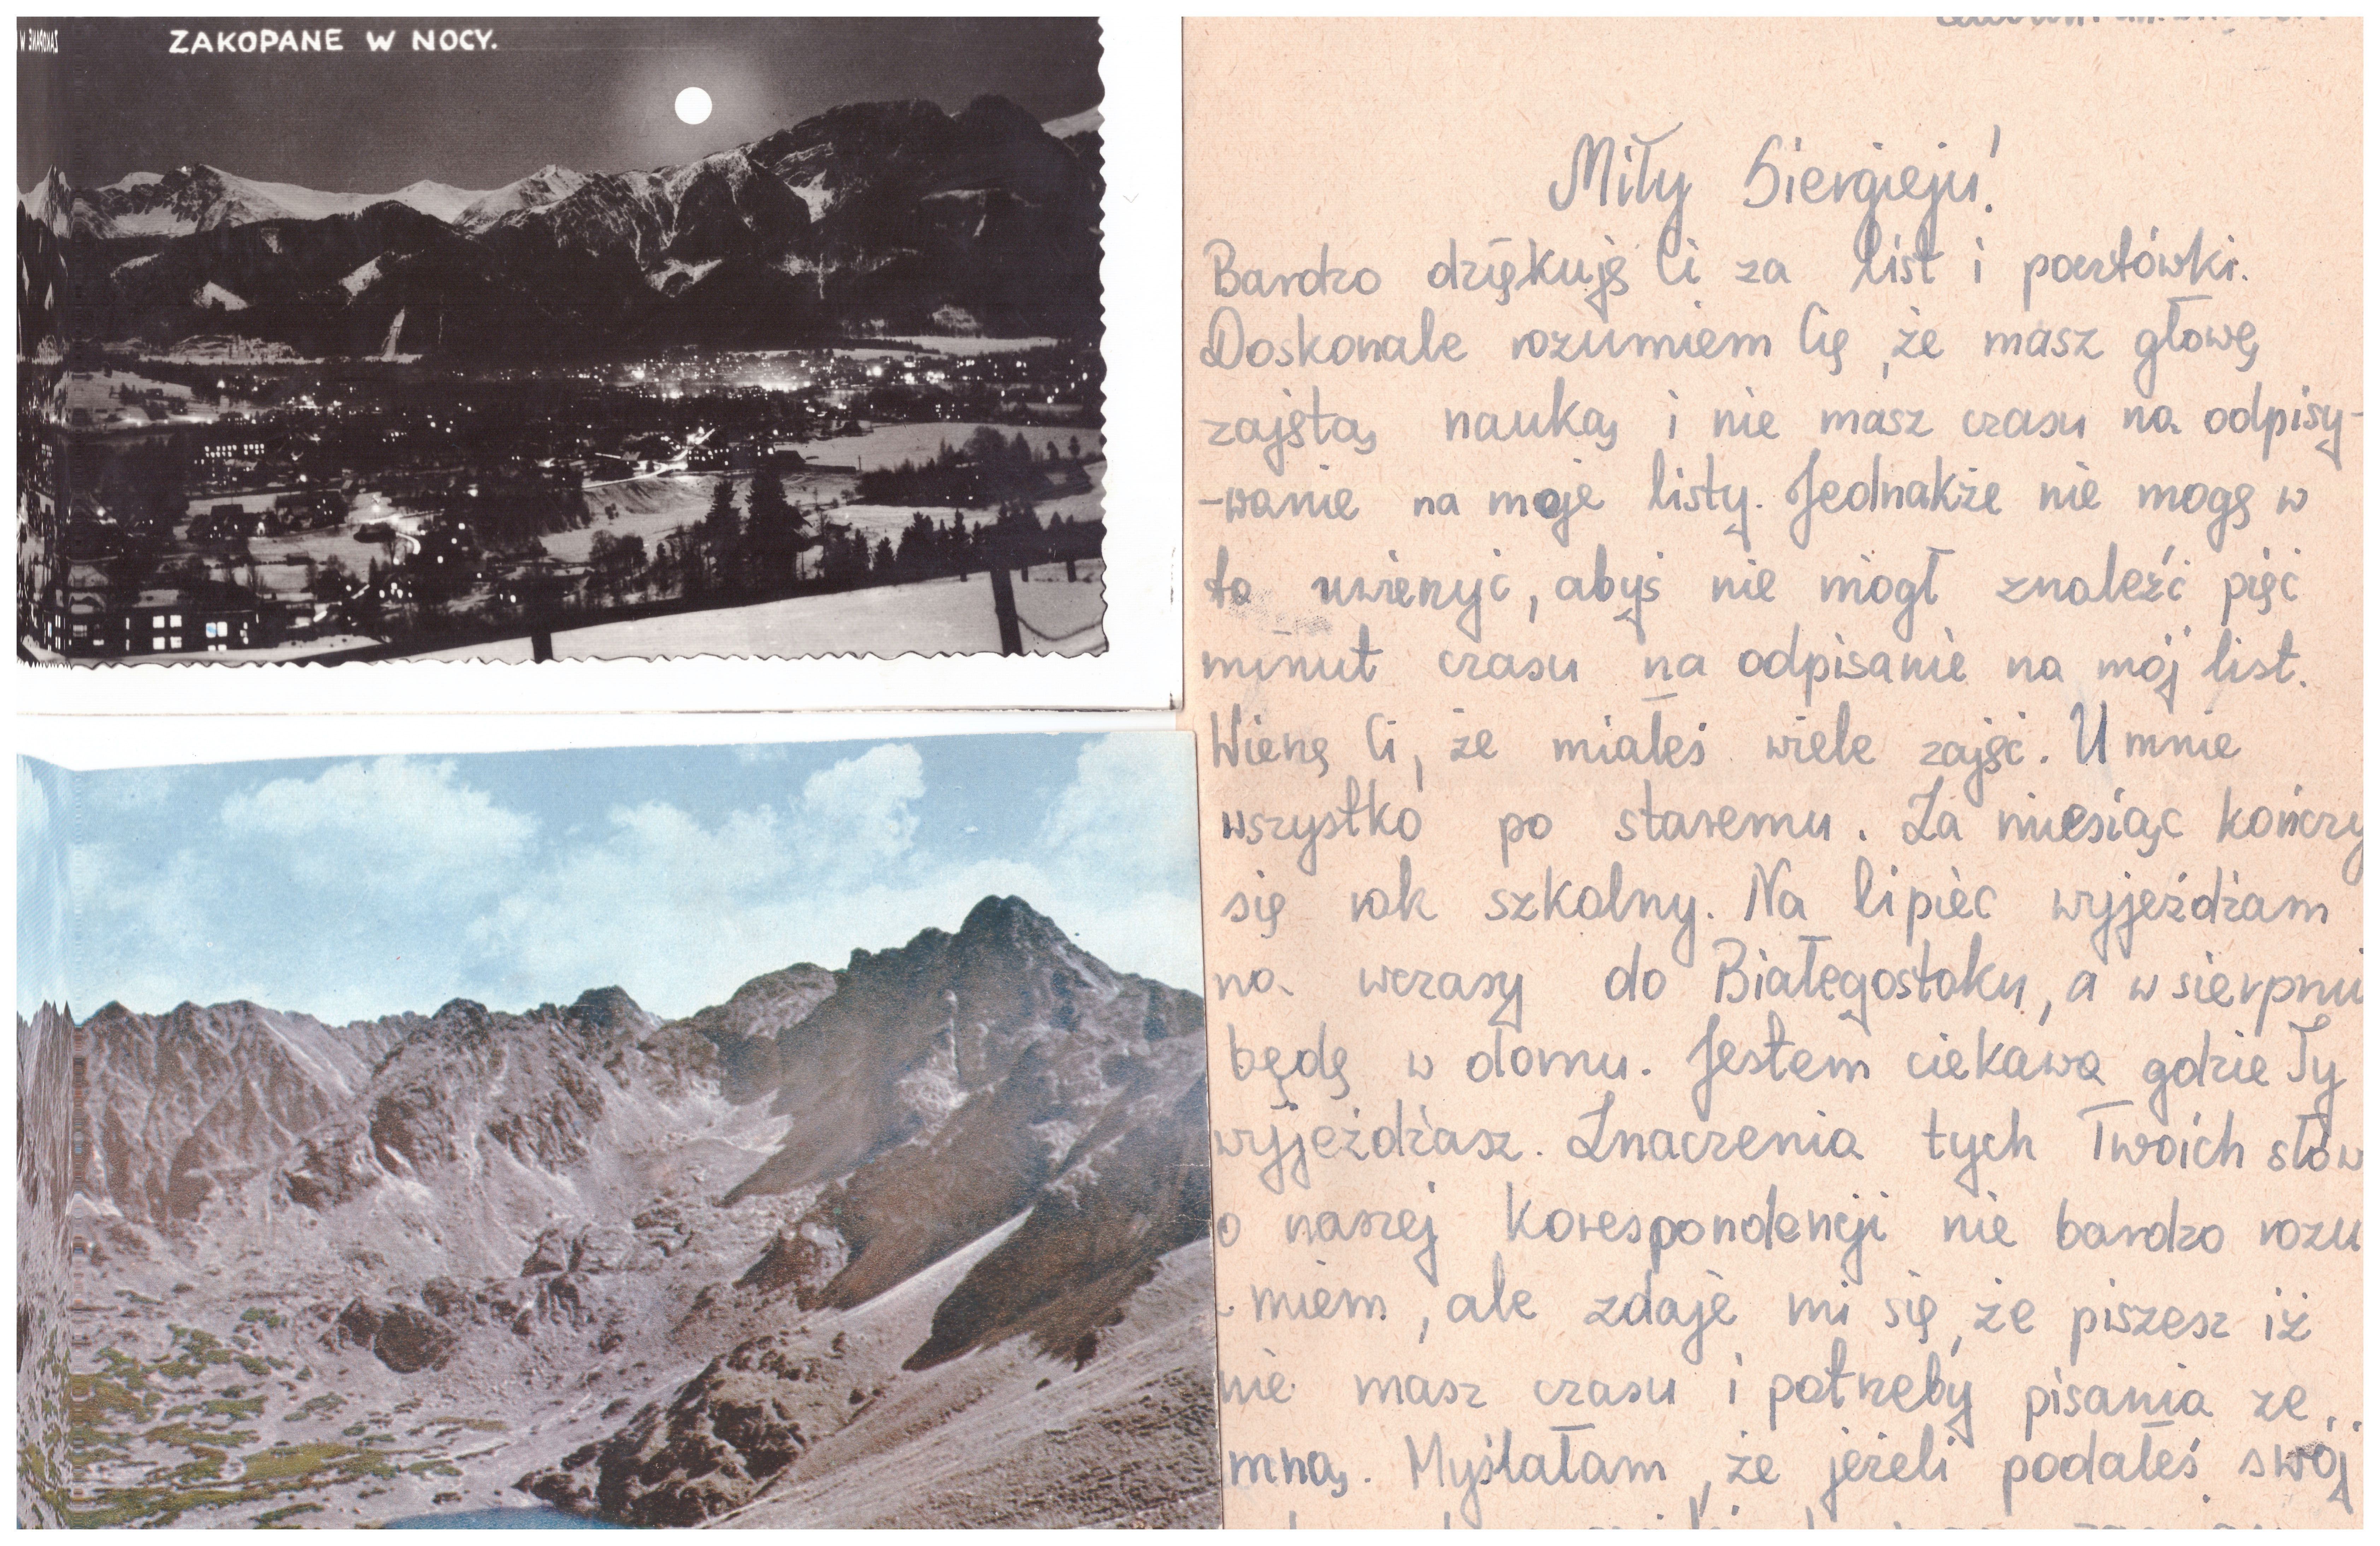 ZAKOPANE W NOCY.
Miły Siergieju!
Bardzo dziękuję Ci za list i pocztówki.
Doskonale rozumiem Cię, że masz głowę
zajętą nauką i nie masz czasu na odpisy-
-wanie na moje listy. Jednakże nie mogę w
to uwierzyć, abyś nie mógł znaleźć pięć
minut czasu na odpisanie na mój list.
Wierzę Ci, że miałeś wiele zajęć. U mnie
wszystko po staremu. Za miesiąc kończy
się rok szkolny. Na lipiec wyjeżdżam
na wczasy do Białegostoku, a w sierpniu
będę w domu. Jestem ciekawa gdzie Ty
wyjeżdżasz. Znaczenia tych Twoich słów
o naszej korespondencji nie bardzo rozu
-miem, ale zdaje mi się, że piszesz iż
nie masz czasu i potrzeby pisania ze
mną. Myślałam, że jeżeli podałeś swój